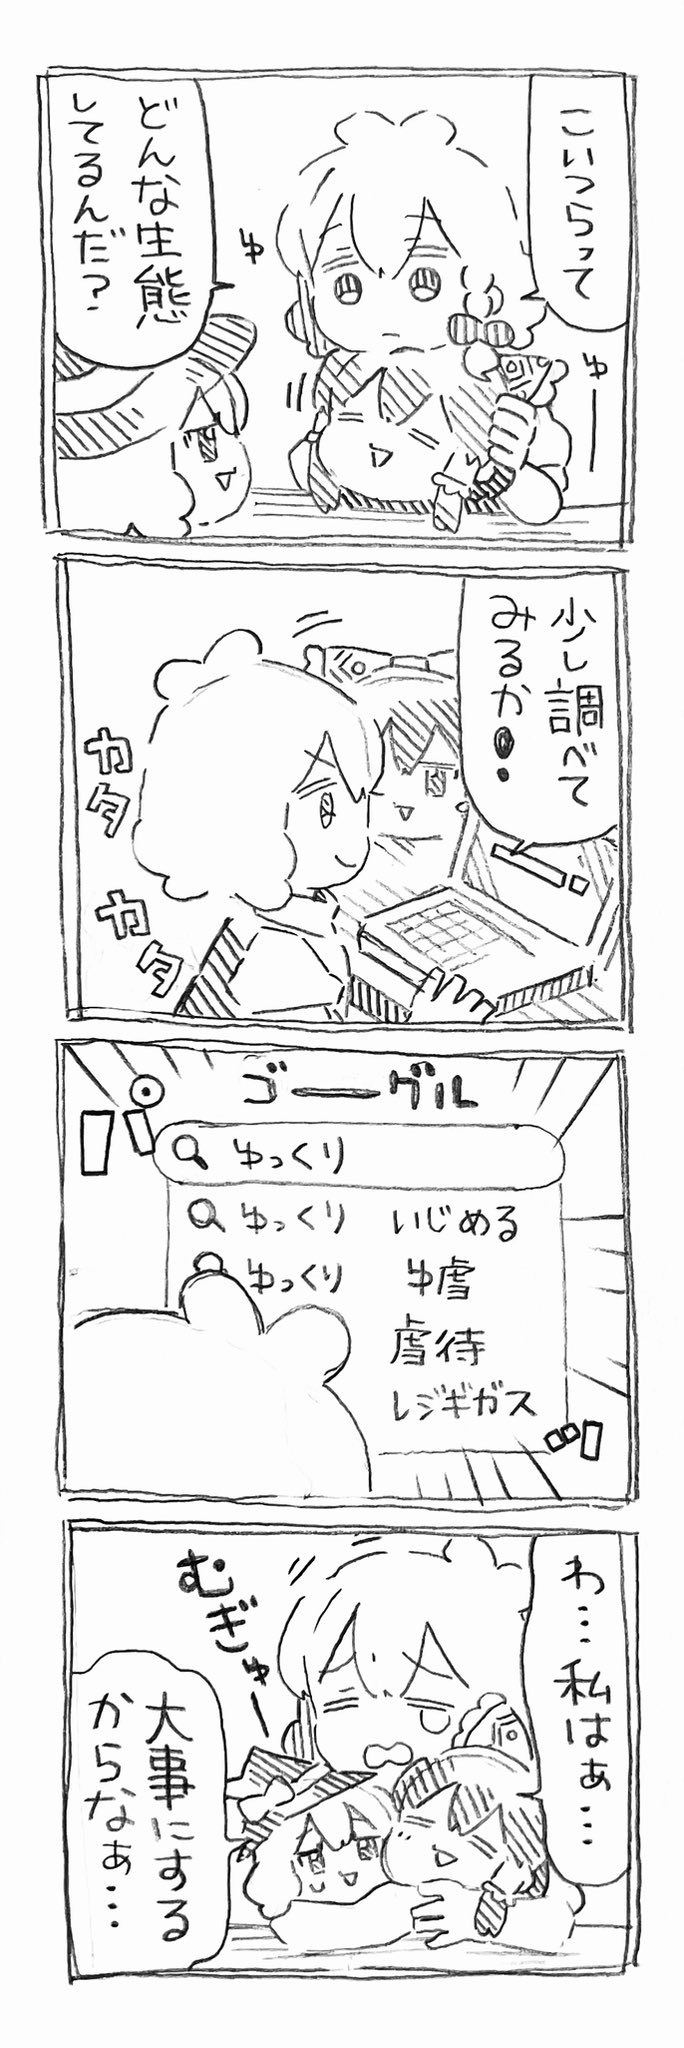 こいつらって
どんな生態
してるんだ?
ゆ
ゆー
少し調べて
みるか!
カタ
カタ
ゴーグル
ゆっくり
ゆっくり いじめる
ゆっくり ゆ虐
虐待
レジギガス
バァーン
わ…私はぁ…
むぎゅー
大事にする
からなぁ…